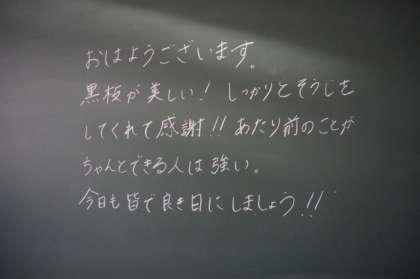 おはようございます。
黒板が美しい！ しっかりとそうじを
してくれて感謝!! あたり前のことが
ちゃんとできる人は強い。
今日も皆で良き日にしましょう!!